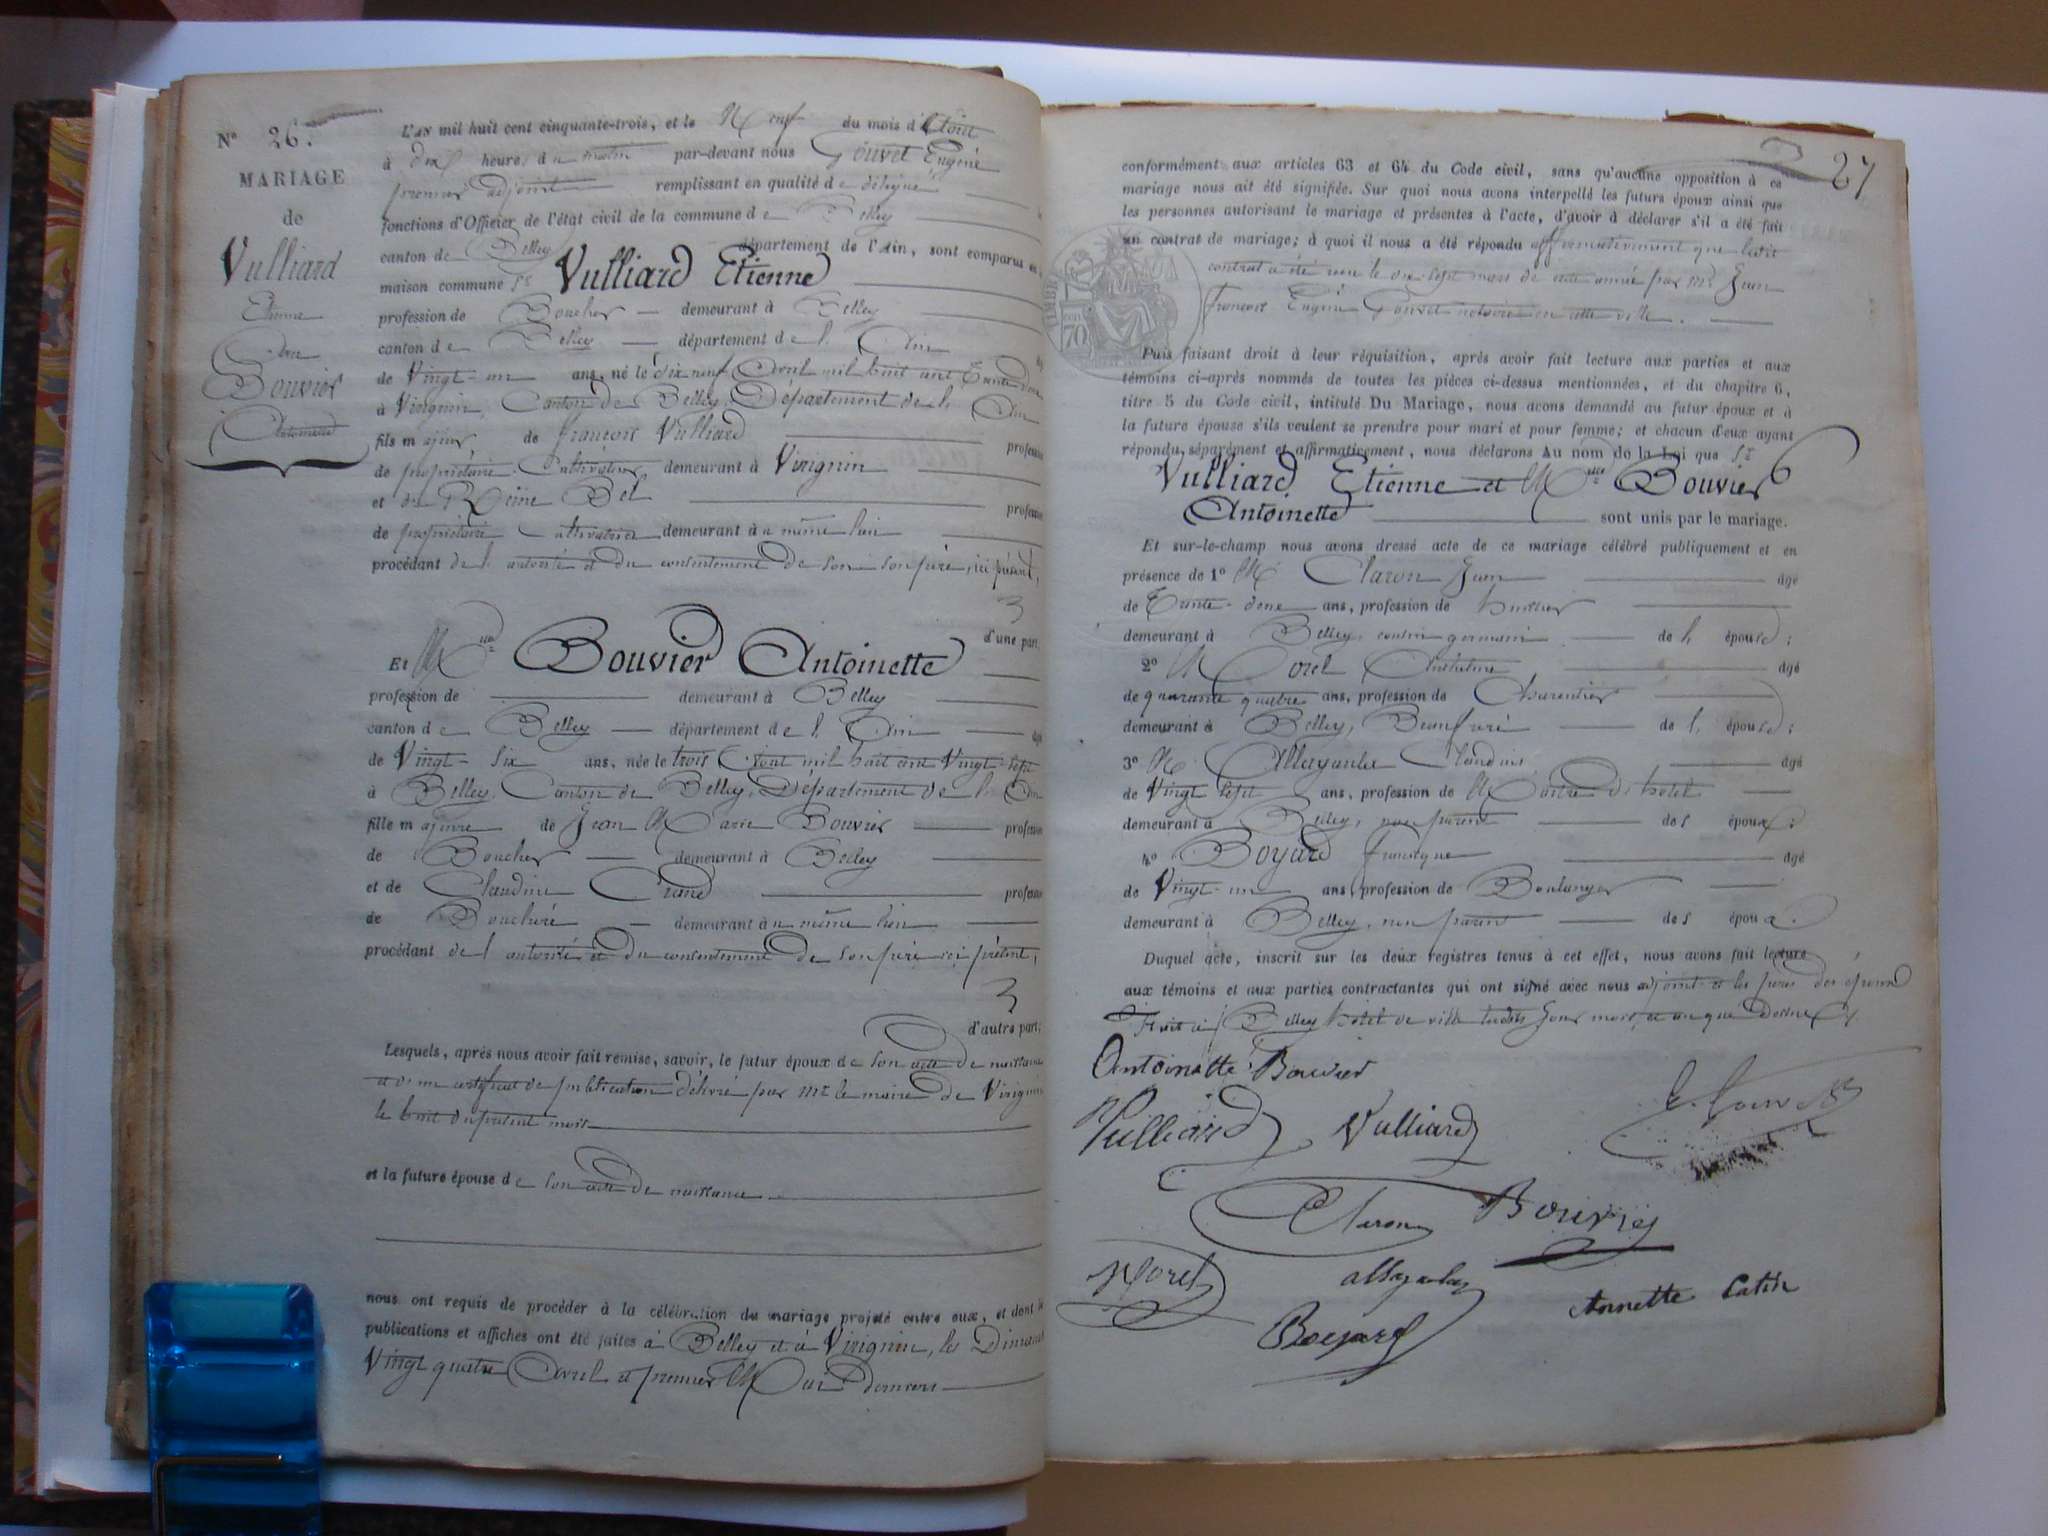 N° 26.
MARIAGE
de
Vulliard
Etienne
&
Bouvier
Antoinette
L'an mil huit cent cinquante-trois, et le Neuf du mois d'Août
à dix heures du matin par-devant nous Gouvet Eugène
premier adjoint remplissant en qualité de délégué les
fonctions d'Officier de l'état civil de la commune de Belley
canton de Belley département de l'Ain, sont comparus en la
maison commune Sr Vulliard Etienne
profession de Boucher demeurant à Belley
canton de Belley département de l'Ain âgé
de Vingt-un ans, né le dix neuf Avril mil huit cent Trente deux
à Virignin, Canton de Belley, Département de l'Ain
fils majeur de françois Vulliard profession
de propriétaire Cultivateur demeurant à Virignin
et de Reine Bel profession
de propriétaire cultivatrice demeurant au même lieu
procédant de l'autorité et du consentement de son père, ici présent,
d'une part.
Et Melle Bouvier Antoinette
profession de demeurant à Belley
canton de Belley département de l'Ain âgée
de Vingt-six ans, née le trois Août mil huit cent Vingt-sept
à Belley, Canton de Belley, Département de l'Ain
fille majeure de Jean Marie Bouvier profession
de Boucher demeurant à Belley
et de Claudine profession
de Bouchère demeurant au même lieu
procédant de l'autorité et du consentement de son père ici présent,
d'autre part;
Lesquels, après nous avoir fait remise, savoir, le futur époux de son acte de naissance
et d'un certificat de publication délivré par Mr le maire de Virignin
le huit du présent mois
et la future épouse de son acte de naissance
nous ont requis de procéder à la célébration du mariage projeté entre eux, et dont les
publications et affiches ont été faites à Belley et à Virignin, les Dimanches
Vingt quatre Avril et premier Mai derniers
27
conformément aux articles 63 et 64 du Code civil, sans qu'aucune opposition à ce
mariage nous ait été signifiée. Sur quoi nous avons interpellé les futurs époux ainsi que
les personnes autorisant le mariage et présentes à l'acte, d'avoir à déclarer s'il a été fait
un contrat de mariage; à quoi il nous a été répondu affirmativement que ledit
contrat a été reçu le dix sept mars de cette année par Mr Jean
françois Eugène Gouvet notaire en cette ville.
TIMBRE
70
Puis faisant droit à leur réquisition, après avoir fait lecture aux parties et aux
témoins ci-après nommés de toutes les pièces ci-dessus mentionnées, et du chapitre 6,
titre 5 du Code civil, intitulé Du Mariage, nous avons demandé au futur époux et à
la future épouse s'ils veulent se prendre pour mari et pour femme; et chacun d'eux ayant
répondu séparément et affirmativement, nous déclarons Au nom de la Loi que Sr
Vulliard Etienne et Melle Bouvier
Antoinette sont unis par le mariage.
Et sur-le-champ nous avons dressé acte de ce mariage célébré publiquement et en
présence de 1° M. Claron Jean âgé
de Trente-deux ans, profession de huissier
demeurant à Belley, cousin germain de l'épouse;
2° M Morel Anthelme âgé
de quarante quatre ans, profession de Charcutier
demeurant à Belley, Beaufrère de l'épouse;
3° M. Claudius âgé
de Vingt sept ans, profession de Maître d'hôtel
demeurant à Belley, non parent des époux;
4° Boyard françois âgé
de Vingt-un ans, profession de Boulanger
demeurant à Belley, non parent des époux.
Duquel acte, inscrit sur les deux registres tenus à cet effet, nous avons fait lecture
aux témoins et aux parties contractantes qui ont signé avec nous adjoint et les pères des époux
Fait à Belley hôtel de ville lesdits jour mois et an que dessus.
Antoinette Bouvier
Vulliard Vulliard
Claron Bouvier
Morel
Boyard
Annette